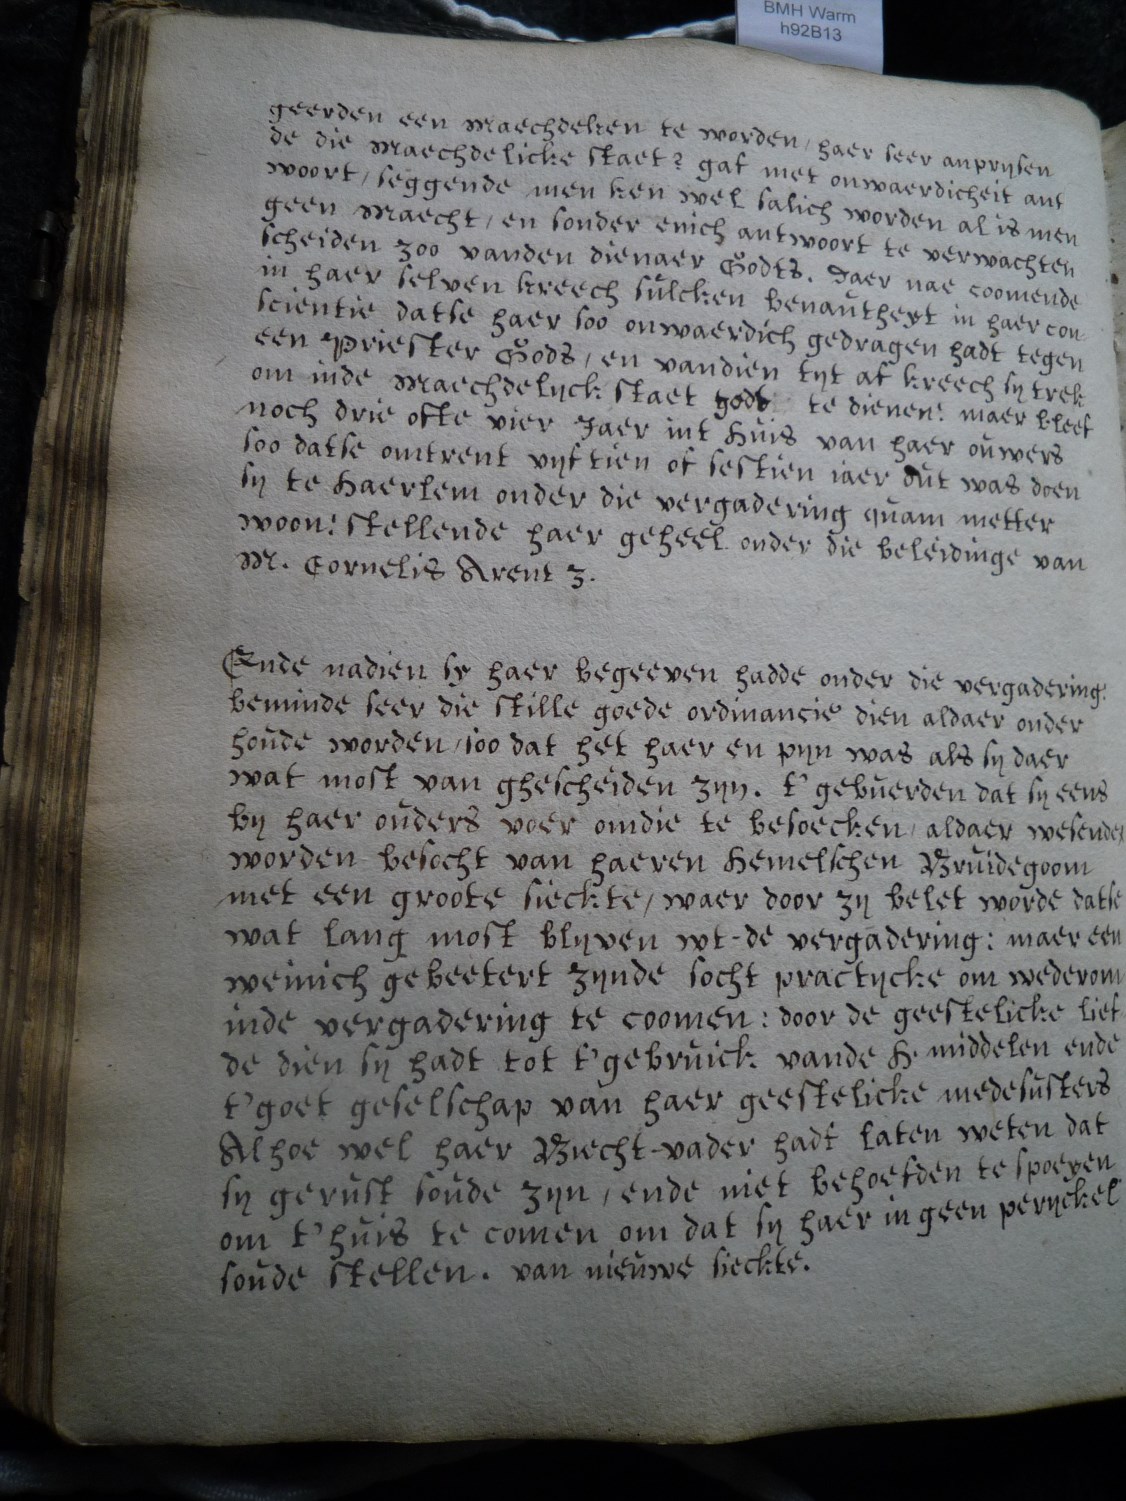 BMH Warm
h92B13
geerden een maechdeken te worden / haer seer anprijsen
de die maechdelicke staet? gaf met onwaerdicheit ant
woort / seggende men ken wel salich worden al is men
geen maecht / en sonder enich antwoort te verwachten
scheiden zoo vanden dienaer Godts. Daer nae coomende
in haer selven kreech sulcken benautheyt in haer con
scientie datse haer soo onwaerdich gedragen hadt tegen
een Priester Gods / en vandien tyt af kreech sy trek
om inde maechdelyck staet godt te dienen! maer bleef
noch drie ofte vier Jaer int huis van haer ouwers
soo datse omtrent vyftien of sestien iaer out was doen
sy te haerlem onder die vergadering quam metter
woon! stellende haer geheel onder die beleidinge van
M. Cornelis Arent z.
Ende nadien sy haer begeeven hadde onder die vergadering!
beminde seer die stille goede ordinancie dien aldaer onder
houde worden / soo dat het haer en pyn was als sy daer
wat most van ghescheiden zyn. t'gebuerden dat sy eens
by haer ouders voer omdie te besoecken / aldaer wesende
worden besocht van haeren hemelschen Bruidegoom
met een groote sieckte / waer door zy belet worde datse
wat lang most blyven wt-de vergadering: maer een
weinich gebeetert zynde socht practycke om wederom
inde vergadering te coomen: door de geestelicke lief
de dien sy hadt tot t'gebruick vande H. middelen ende
t'goet geselschap van haer geestelicke medesusters
Alhoe wel haer Biecht-vader hadt laten weten dat
sy gerust soude zyn / ende niet behoefden te spoeyen
om t'huis te comen om dat sy haer in geen peryckel
soude stellen. van nieuwe sieckte.